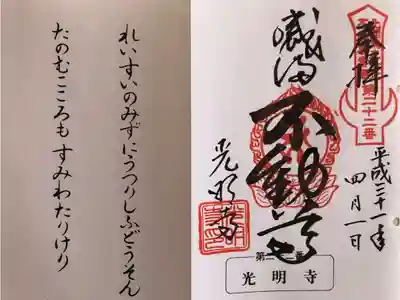 れいすいのみずにうつりしふどうそん
たのむこころもすみわたりけり
奉拝
第二十二番
平成三十一年
四月一日
厳海
不動尊
光明寺
光明寺